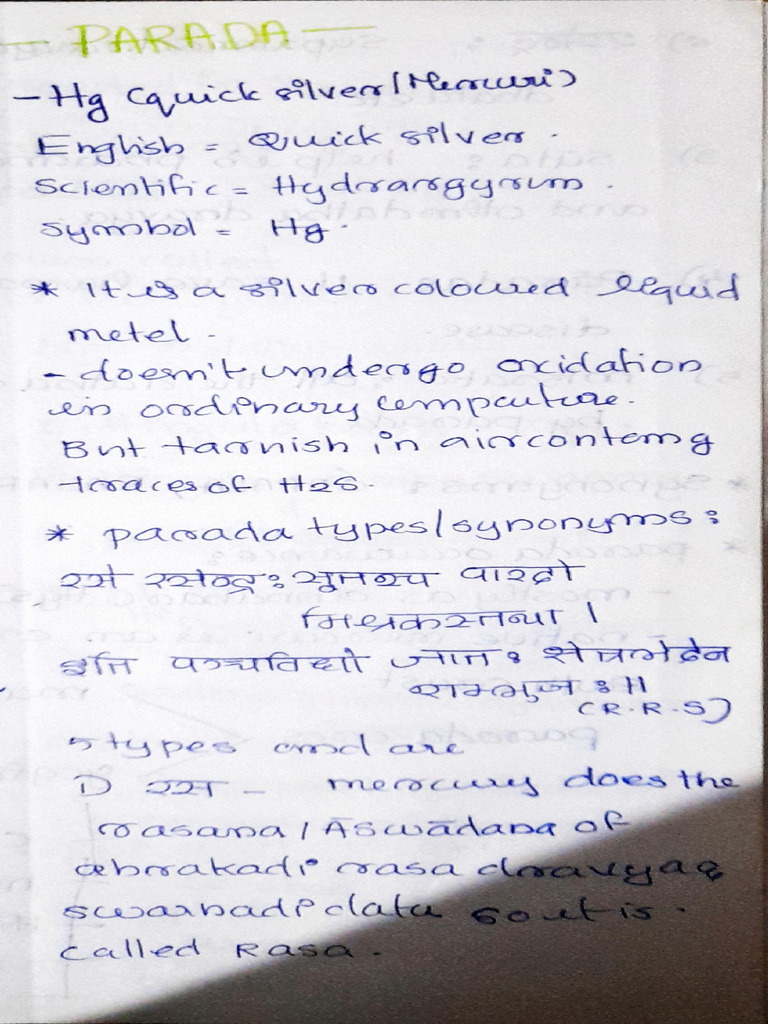 PARADA
- Hg Cquick silver/Mercuri)
English = Quick silver.
Scientific = Hydrargyrum.
Symbol = Hg.
* It is a silver coloured liquid
metel.
- doesn't undergo oxidation
in ordinary
But tarnish in air
traces of H2S.
* parada types/synonyms:
रस रसेन्द्रः सूतश्च पारदो
मिश्रकस्तथा ।
इति पञ्चविधो जातः क्षेत्रभेदेन
शम्भुजः ॥
(R.R.S)
5 types and are
1) रस - mercury does the
rasana / Āswādana of
abrakadi rasa dravya &
swarnadi datu so it is.
called Rasa.